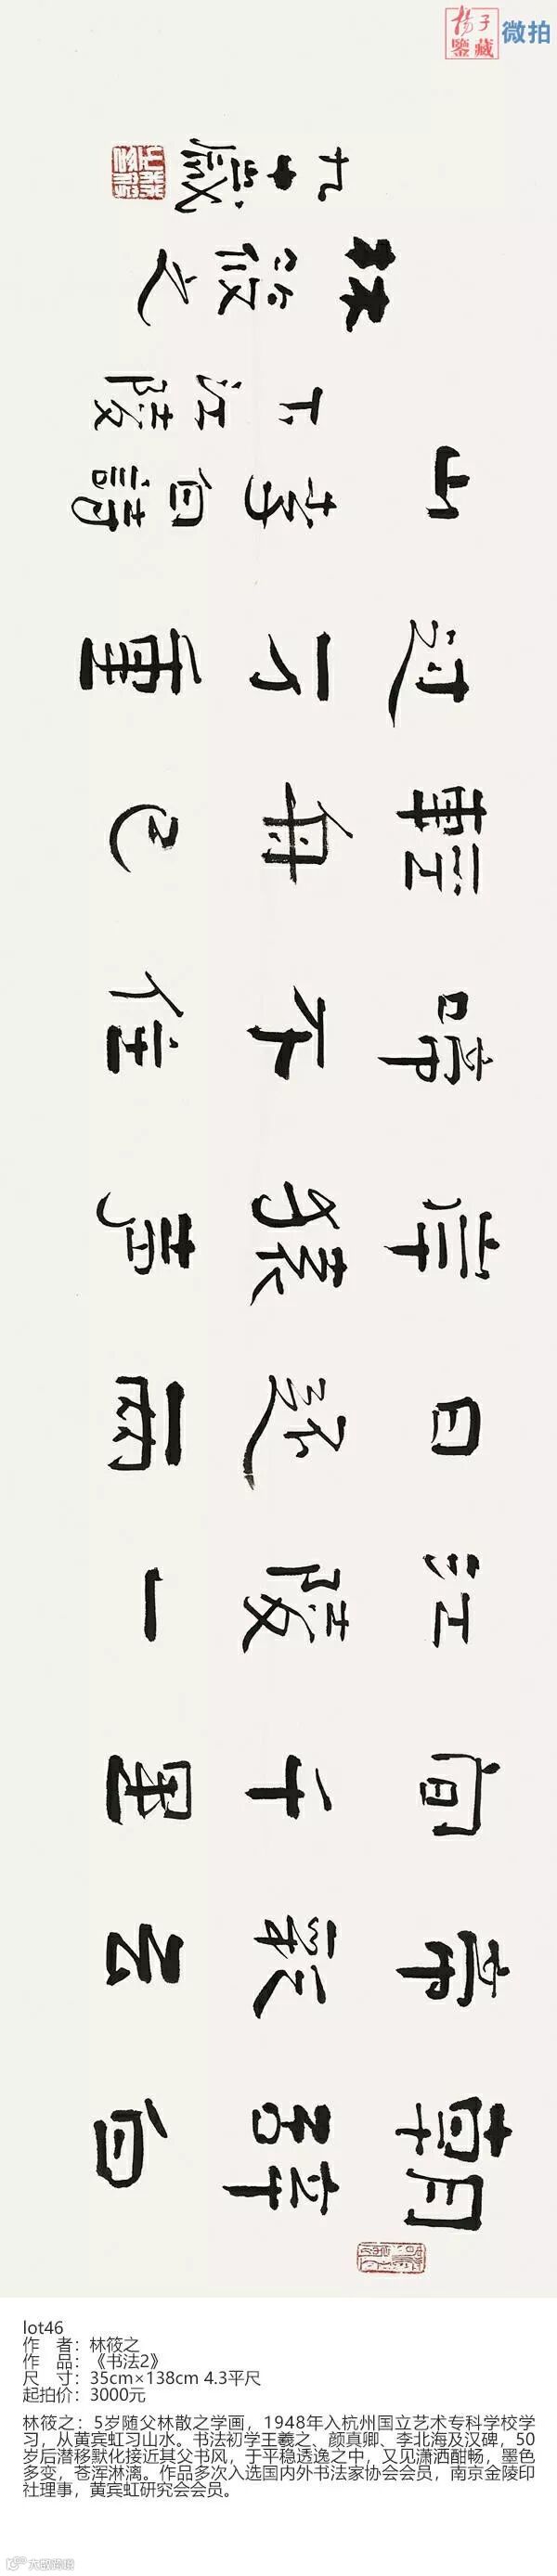 揚子
鑒藏
微拍
朝辞白
帝彩云
间千里
江陵一
日还兩
岸猿声
啼不住
輕舟已
过万重
山
李白詩
下江陵
林筱之
lot46
作 者：林筱之
作 品：《书法2》
尺 寸：35cm×138cm 4.3平尺
起拍价：3000元
林筱之：5岁随父林散之学画，1948年入杭州国立艺术专科学校学
习，从黄宾虹习山水。书法初学王羲之、颜真卿、李北海及汉碑，50
岁后潜移默化接近其父书风，于平稳透逸之中，又见潇洒酣畅，墨色
多变，苍浑淋漓。作品多次入选国内外书法家协会会员，南京金陵印
社理事，黄宾虹研究会会员。